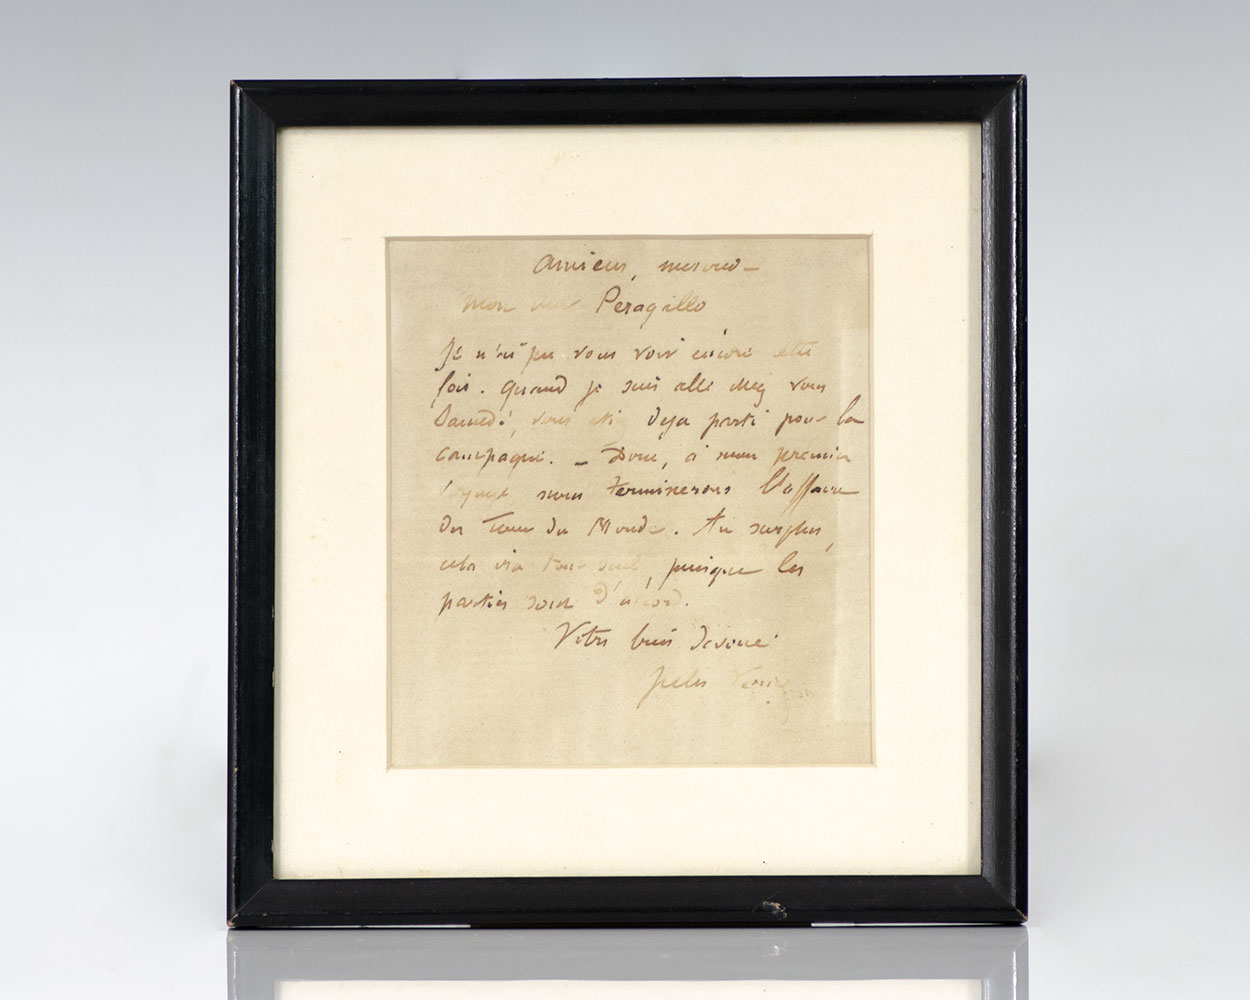 Amiens, mercredi
Mon cher Peragallo
Je n'ai pu vous voir encore cette
fois. Quand je suis allé chez vous
Samedi, vous étiez déjà parti pour la
campagne. – Donc, à mon premier
voyage nous terminerons l'affaire
du Tour du Monde. Au surplus,
cela ira tout seul, puisque les
parties sont d'accord.
Votre bien dévoué
Jules Verne